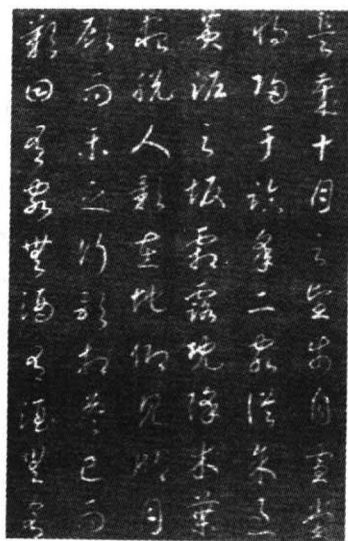 是歲十月之望步自雪堂
將歸于臨皋二客從余過
黃泥之坂霜露既降木葉
盡脫人影在地仰見明月
顧而樂之行歌相答已而
歎曰有客無酒有酒無肴